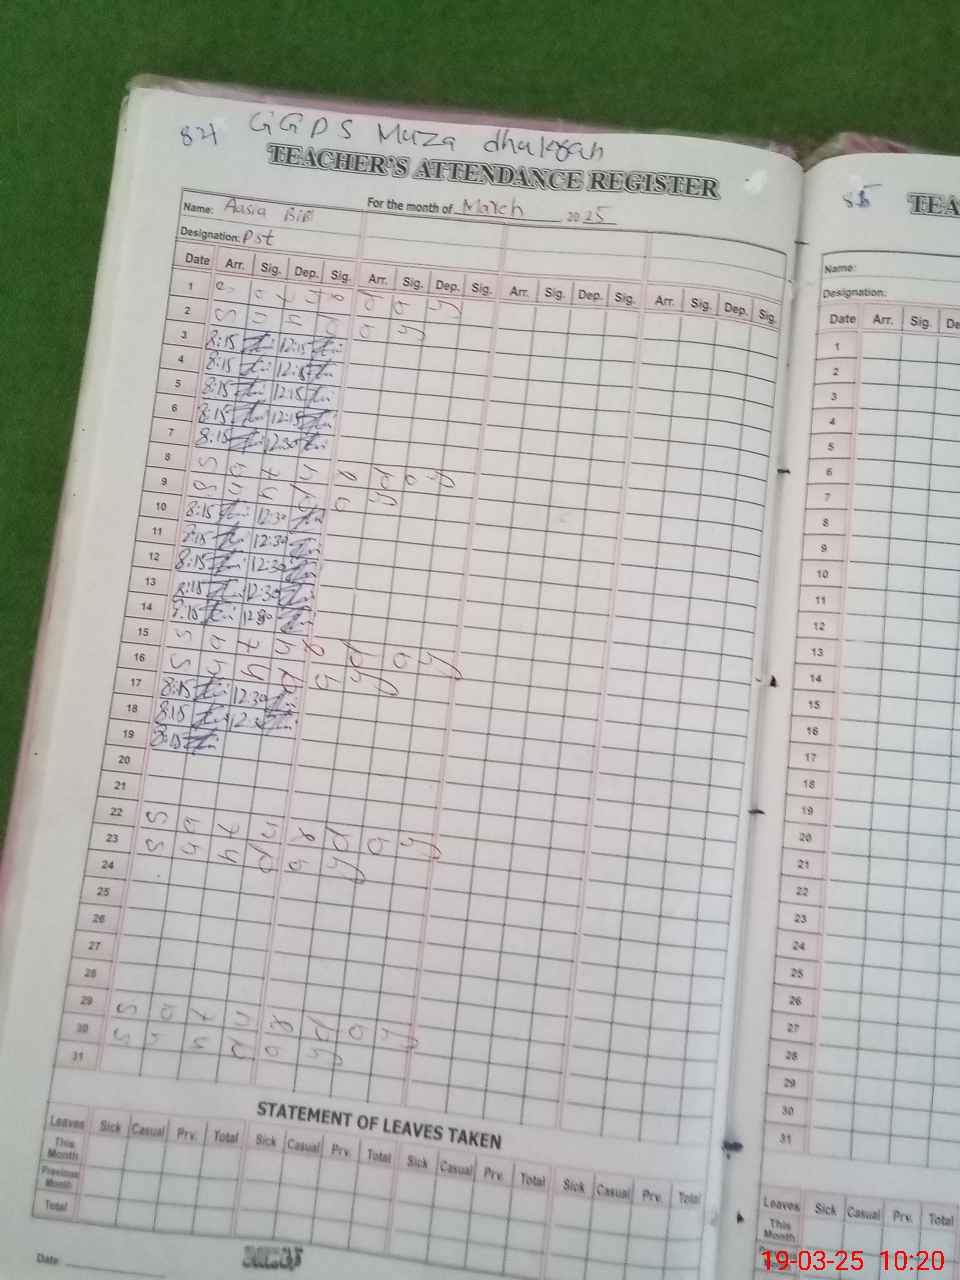 84 GGPS Muza dhakgan
TEACHER'S ATTENDANCE REGISTER
Name: Aasia BiBi For the month of March 2025
Designation: Pst
Date Arr. Sig. Dep. Sig. Arr. Sig. Dep. Sig. Arr. Sig. Dep. Sig. Arr. Sig. Dep. Sig.
1 Saturday
2 Sunday
3 8:15 12:15
4 8:15 12:15
5 8:15 12:15
6 8:15 12:15
7 8:15 12:30
8 Saturday
9 Sunday
10 8:15 12:30
11 8:15 12:30
12 8:15 12:30
13 8:15 12:30
14 8:15 12:30
15 Saturday
16 Sunday
17 8:15 12:30
18 8:15 12:30
19 8:15
20
21
22 Saturday
23 Sunday
24
25
26
27
28
29 Saturday
30 Sunday
31
STATEMENT OF LEAVES TAKEN
Leaves Sick Casual Prv. Total Sick Casual Prv. Total Sick Casual Prv. Total Sick Casual Prv. Total
This Month
Previous Month
Total
Date
85 TEA
Name:
Designation:
Date Arr. Sig. De
1
2
3
4
5
6
7
8
9
10
11
12
13
14
15
16
17
18
19
20
21
22
23
24
25
26
27
28
29
30
31
Leaves Sick Casual Prv. Total
This Month
Previous Month
19-03-25 10:20